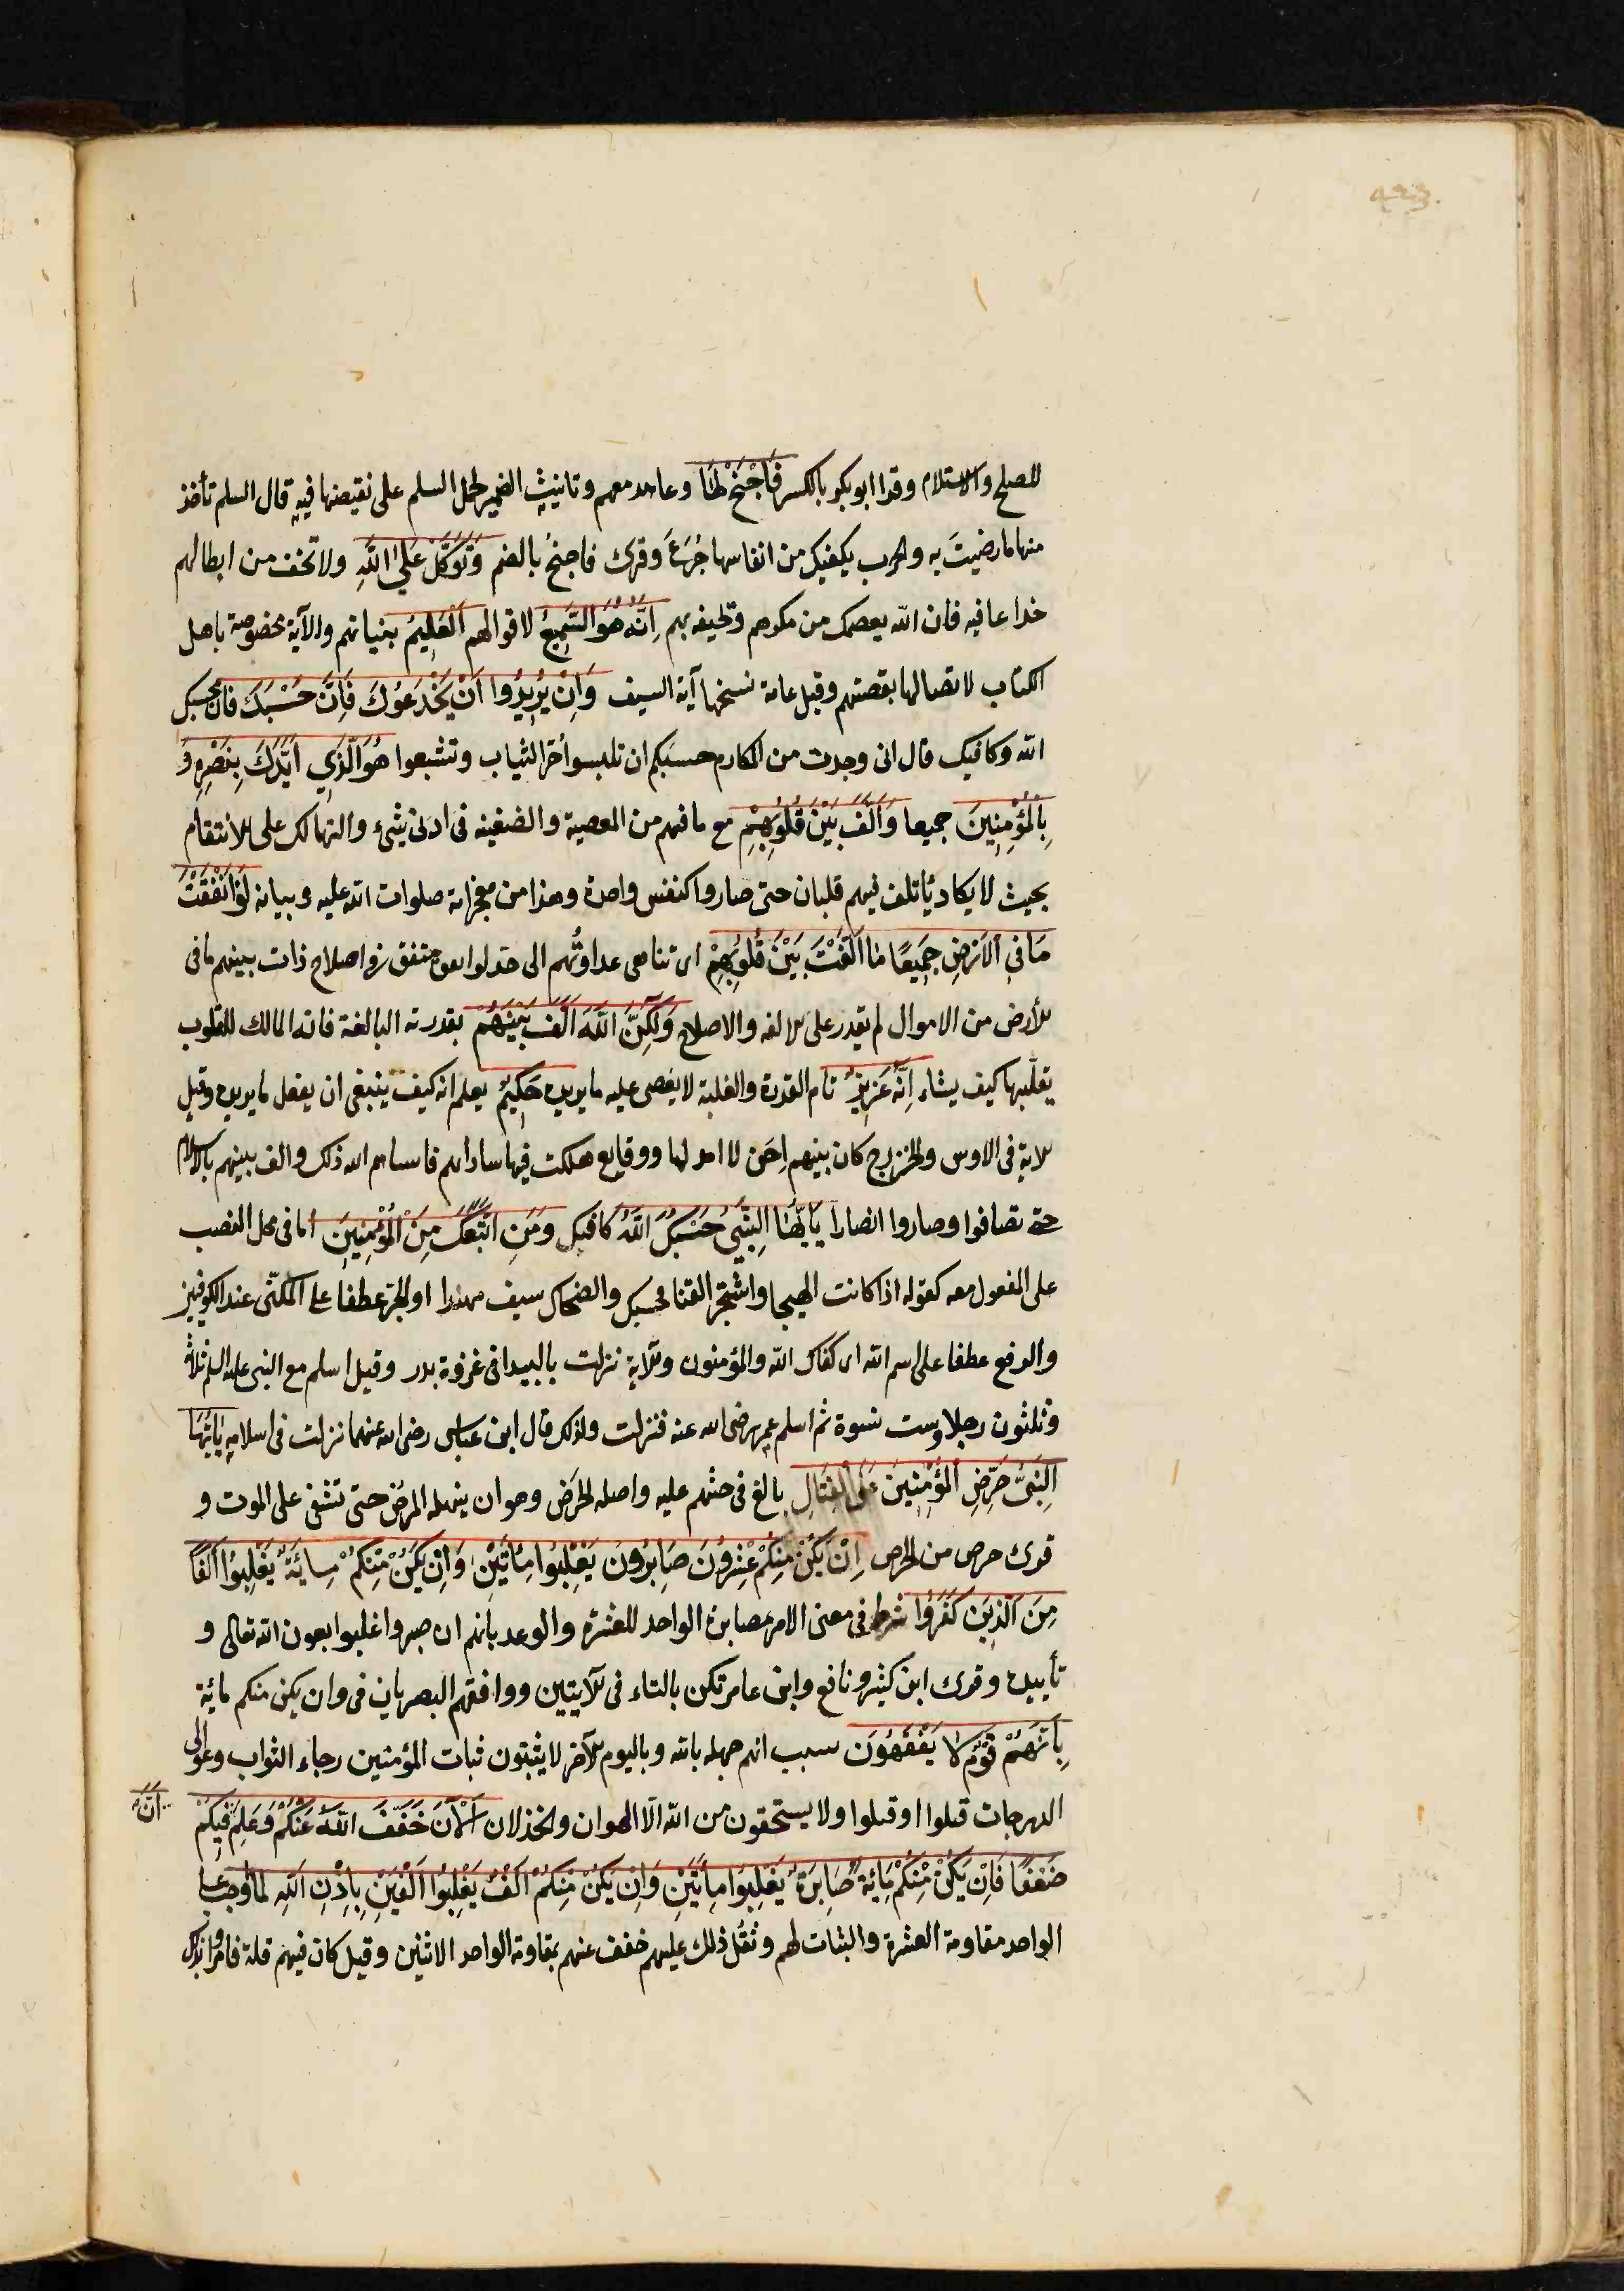 للصلح والاستلام وقرا ابو بكر بالكسر فَاجْنَحْ لَهَا وعاهد معهم وتانيث الضمير لحمل السلم على نقيضها فيه قال السلم تأخذ
منها ما رضيتَ به والحرب يكفيك من انفاسها جُرَعُ وقرئ فاجنحُ بالضم وَتَوَكَّلْ عَلَى اللّهِ ولا تخف من ابطالهم
خداعا فيه فان الله يعصمك من مكرهم وتحيفه بهم اِنَّهُ هُوَ السَّمِيعُ لاقوالهم الْعَلِيمُ بنياتهم والآية مخصوصة باهل
الكتاب لاتصالها بقصتهم وقيل عامة نسختها آية السيف وَاِنْ يُرِيدُوا اَنْ يَخْدَعُوكَ فَاِنَّ حَسْبَكَ فان محسبك
الله وكافيك قال انى وجدت من المكارم حسبكم ان تلبسوا خزّ الثياب وتشبعوا هُوَ الَّذِي اَيَّدَكَ بِنَصْرِهِ وَ
بِالْمُؤْمِنِينَ جميعا وَاَلَّفَ بَيْنَ قُلُوبِهِمْ مع ما فيهم من العصبية والضغينه فى ادنى شىء والتهالك على الانتقام
بحيث لا يكاد يأتلف فيهم قلبان حتى صاروا كنفس واحدة وهذا من معجزاته صلوات الله عليه وبيانه لَوْ اَنْفَقْتَ
مَا فِي الْاَرْضِ جَمِيعًا مَا اَلَّفْتَ بَيْنَ قُلُوبِهِمْ اى تناهى عداوتُهم الى حد لو انفق منفق فى اصلاح ذات بينهم ما فى
الأرض من الاموال لم يقدر على الالفه والاصلاح وَلَكِنَّ اللّهَ اَلَّفَ بَيْنَهُمْ بقدرته البالغة فانه المالك للقلوب
يقلّبها كيف يشاء اِنَّهُ عَزِيزٌ تام القدرة والغلبة لا يعصى عليه ما يريده حَكِيمٌ يعلم انه كيف ينبغى ان يفعل ما يريده وقيل
الاية فى الاوس والخزرج كان بينهم اِحَن لا امد لها ووقايع هلكت فيها ساداتهم فانساهم الله ذلك والف بينهم بالاسلام
حتى تصافوا وصاروا انصارا يَا اَيُّهَا النَّبِيُّ حَسْبُكَ اللّهُ كافيك وَمَنِ اتَّبَعَكَ مِنَ الْمُؤْمِنِينَ اما فى محل النصب
على المفعول معه كقوله اذا كانت الهيجا واشتجر القنا فحسبك والضحاك سيف مهندا او الجرّ عطفا على المكنّى عند الكوفيين
والرفع عطفا على اسم الله اى كفاك الله والمؤمنون والاية نزلت بالبيدا فى غزوة بدر وقيل اسلم مع النبى عليه السلم ثلاثة
وثلثون رجلا وست نسوة ثم اسلم عمر رضى الله عنه فنزلت ولذلك قال ابن عباس رضى الله عنهما نزلت فى اسلامه يَا اَيُّهَا
النَّبِيُّ حَرِّضِ الْمُؤْمِنِينَ عَلَى الْقِتَالِ بالغ فى حثهم عليه واصله الحرَض وهو ان ينهكه المرض حتى تشفى على الموت و
قرئ حرص من الحرص اِنْ يَكُنْ مِنْكُمْ عِشْرُونَ صَابِرُونَ يَغْلِبُوا مِأَتَيْنِ وَاِنْ يَكُنْ مِنْكُمْ مِائَةٌ يَغْلِبُوا اَلْفًا
مِنَ الَّذِينَ كَفَرُوا شرط فى معنى الامر بمصابرة الواحد للعشرة والوعد بانهم ان صبروا غلبوا بعون الله تعالى و
تأييده وقرئ ابن كثير ونافع وابن عامر تكن بالتاء فى الآيتين ووافقهم البصريان فى وان يكن منكم مائة
بِاَنَّهُمْ قَوْمٌ لَا يَفْقَهُونَ سبب انهم جهله بالله وباليوم الآخر لا يثبتون ثبات المؤمنين رجاء الثواب وعوالى
الدرجات قتلوا او قتلوا ولا يستحقون من الله الّا الهوان والخذلان اَلْآنَ خَفَّفَ اللّهُ عَنْكُمْ وَعَلِمَ فِيكُمْ
اَنَّ
ضَعْفًا فَاِنْ يَكُنْ مِنْكُمْ مِائَةٌ صَابِرَةٌ يَغْلِبُوا مِأَتَيْنِ وَاِنْ يَكُنْ مِنْكُمْ اَلْفٌ يَغْلِبُوا اَلْفَيْنِ بِاِذْنِ اللّهِ لما اوجب على
الواحد مقاومة العشرة والثبات لهم وثقُل ذلك عليهم خفف عنهم بمقاومة الواحد الاثنين وقيل كان فيهم قلة فامروا بذلك